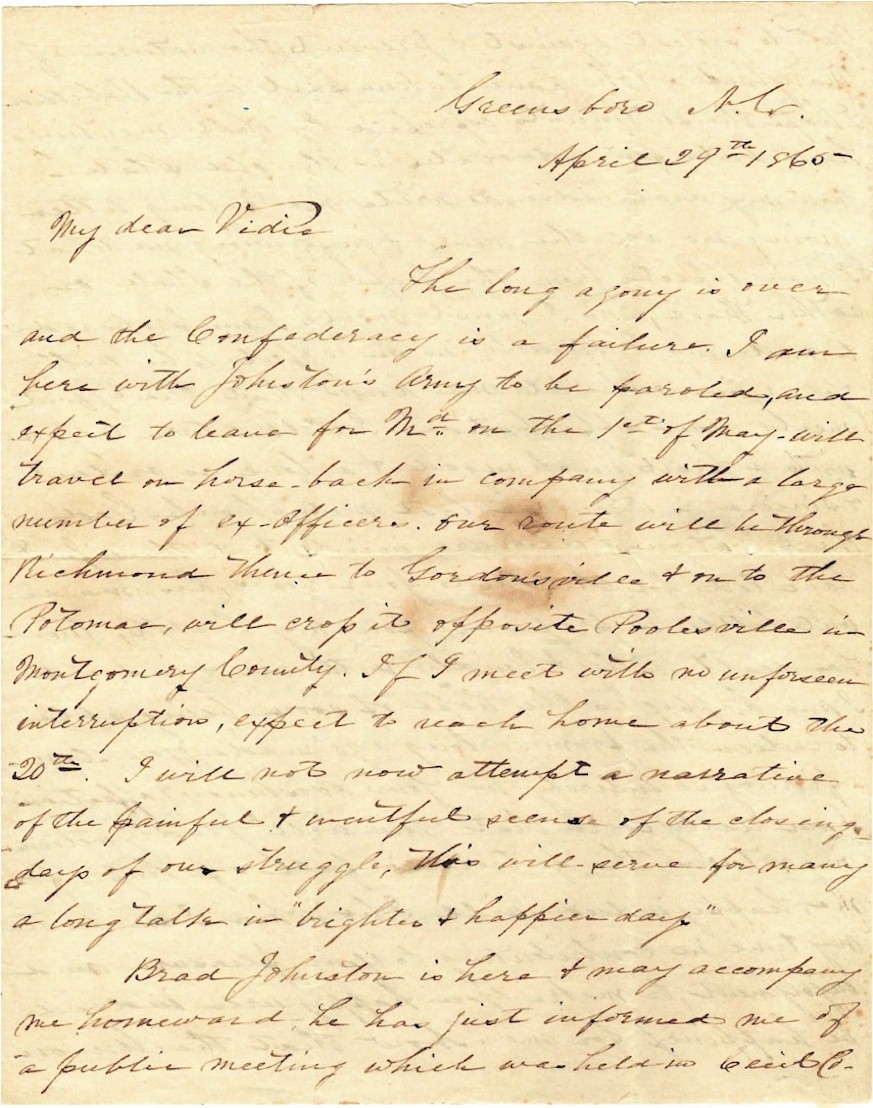 Greensboro N.C.
April 29th 1865
My dear Vidie
The long agony is over
and the Confederacy is a failure. I am
here with Johnston's Army to be paroled, and
expect to leave for Md. on the 1st of May - will
travel on horse-back in company with a large
number of ex-officers. Our route will be through
Richmond thence to Gordonsville & on to the
Potomac, will cross it opposite Poolesville in
Montgomery County. If I meet with no unforseen
interruption, expect to reach home about the
20th. I will not now attempt a narrative
of the painful & eventful scenes of the closing
days of our struggle, this will serve for many
a long talk in "brighter & happier days"
Brad Johnston is here & may accompany
me homeward, he has just informed me of
a public meeting which was held in Cecil Co.